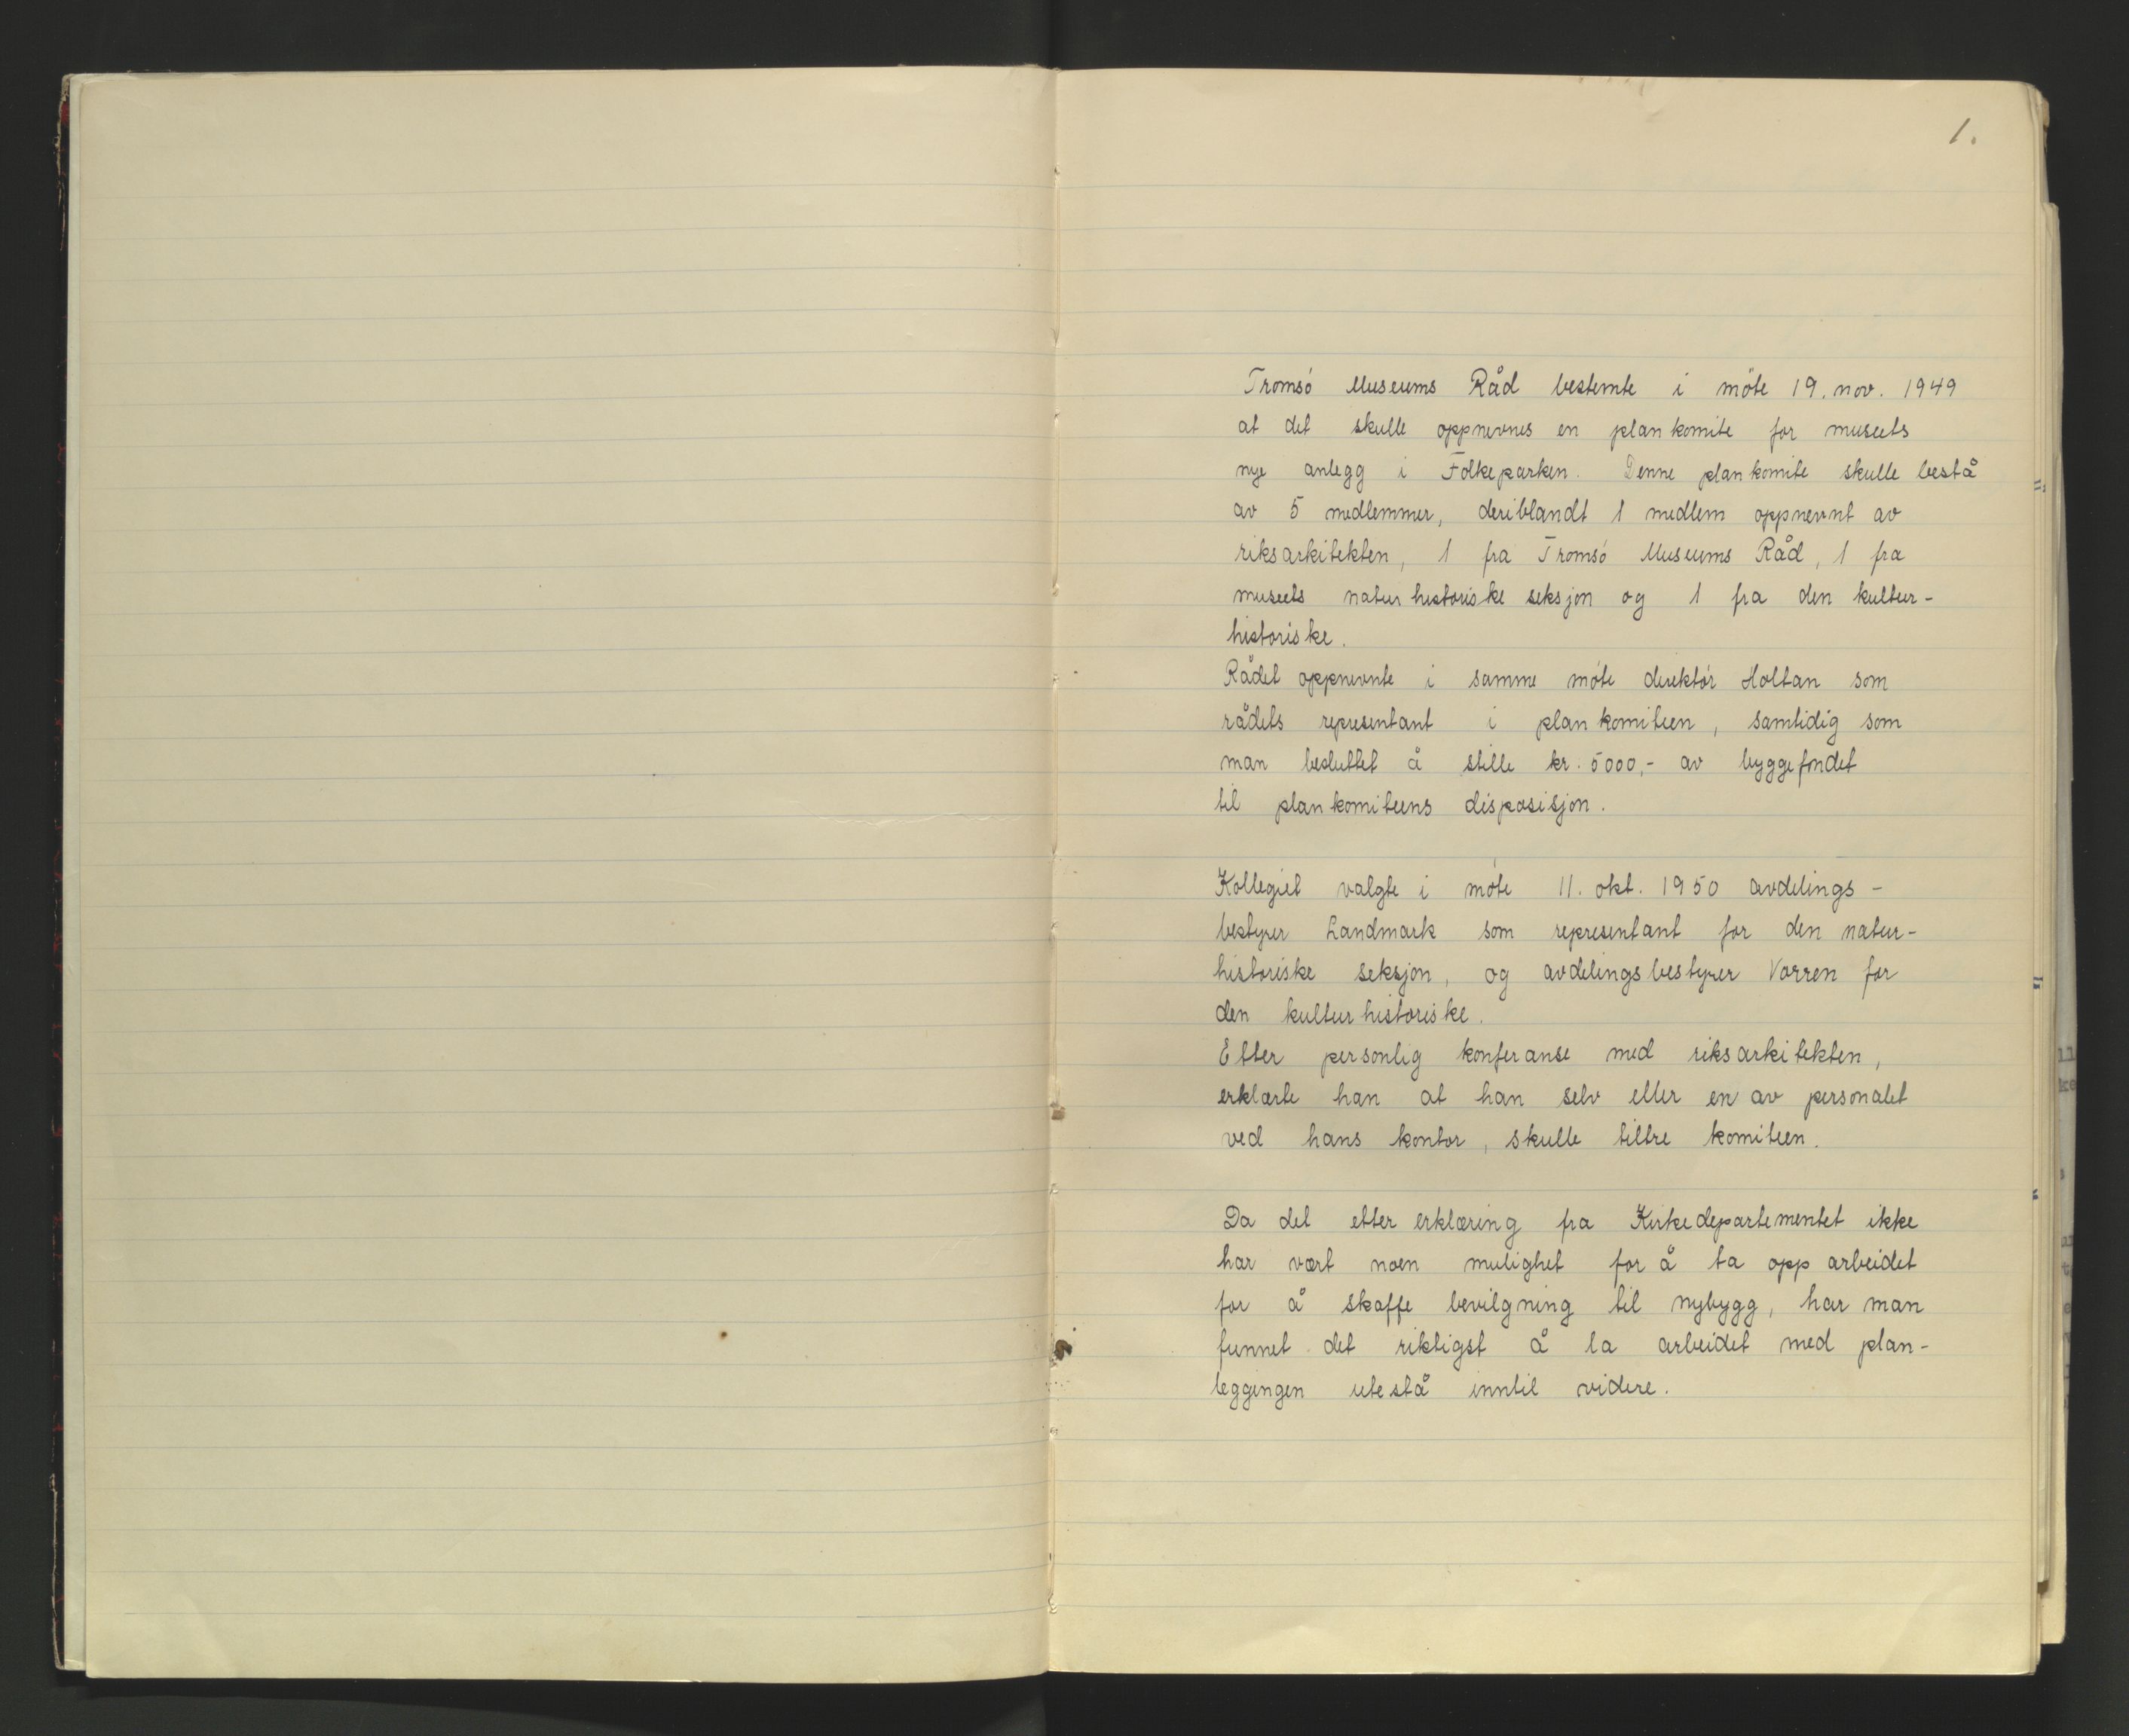 1.
Tromsö Museums Råd bestemte i möte 19. nov. 1949
at det skulle oppnevnes en plankomite for museets
nye anlegg i Folkeparken. Denne plankomite skulle bestå
av 5 medlemmer, deriblandt 1 medlem oppnevnt av
riksarkitekten, 1 fra Tromsö Museums Råd, 1 fra
museets naturhistoriske seksjon og 1 fra den kultur-
historiske.
Rådet oppnevnte i samme möte direktör Holtan som
rådets representant i plankomiteen, samtidig som
man besluttet å stille kr. 5000,- av byggefondet
til plankomiteens disposisjon.
Kollegiet valgte i möte 11. okt. 1950 avdelings-
bestyrer Landmark som representant for den natur-
historiske seksjon, og avdelingsbestyrer Vorren for
den kulturhistoriske.
Etter personlig konferanse med riksarkitekten,
erklærte han at han selv eller en av personalet
ved hans kontor, skulle tiltre komiteen.
Da det etter erklæring fra Kirkedepartementet ikke
har vært noen mulighet for å ta opp arbeidet
for å skaffe bevilgning til nybygg, har man
funnet det riktigst å la arbeidet med plan-
leggingen utestå inntil videre.